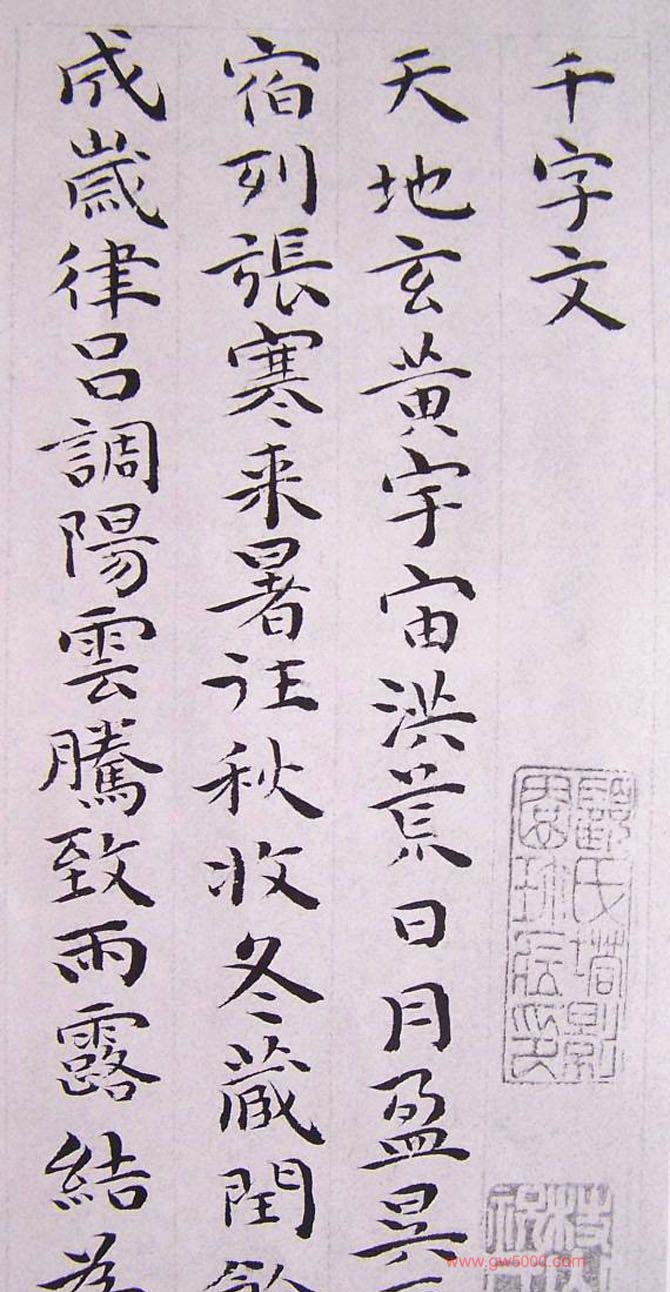 千字文
天地玄黄宇宙洪荒日月盈昃
宿列張寒来暑往秋收冬藏閏
成歲律呂調陽雲騰致雨露結為
顧氏塔影
園珍藏印
www.gw5000.com